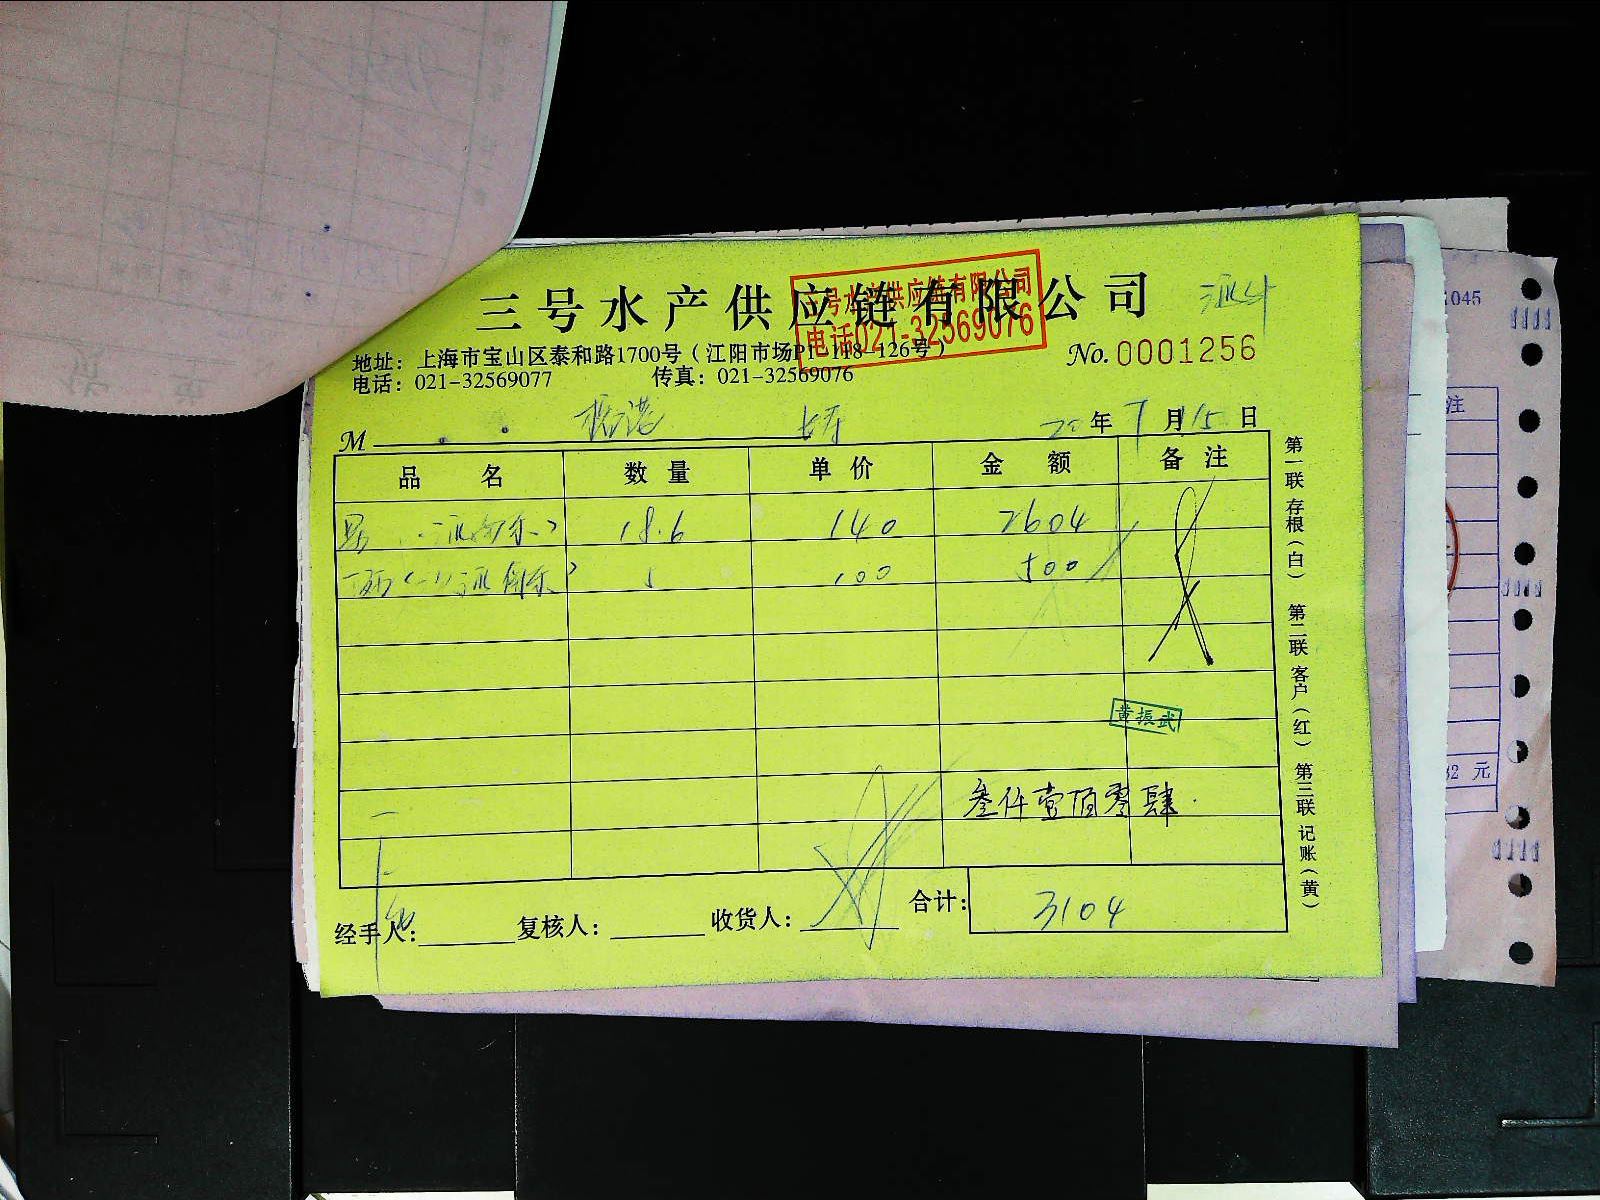 三号水产供应链有限公司
三号水产供应链有限公司
电话021-32569076
地址：上海市宝山区泰和路1700号（江阳市场P1-118-126号）
No.0001256
电话：021-32569077 传真：021-32569076
M 年 7 月 15 日
品名 数量 单价 金额 备注
18.6 140 2604
5 100 500
黄振武
叁仟壹佰零肆
经手人： 复核人： 收货人： 合计： 3104
第一联 存根（白） 第二联 客户（红） 第三联 记账（黄）
1045
注
32 元